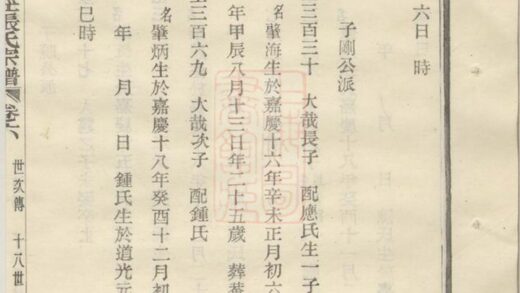 六日 時
子剛公派
三百三十 大哉長子 配應氏生一子
名肇海生於嘉慶十六年辛未正月初六
年甲辰八月十三日年二十五歲 葬菴
三百六九 大哉次子 配鍾氏
名肇炳生於嘉慶十八年癸酉十二月初
年 月 日鍾氏生於道光元
巳時
張氏宗譜 卷六 世次傳 十八世